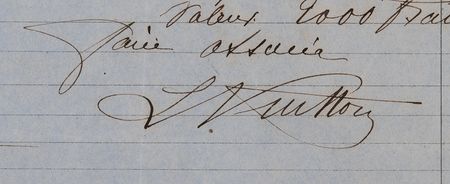 Valeur 2000 Fra
Paié associé
L Vuitton